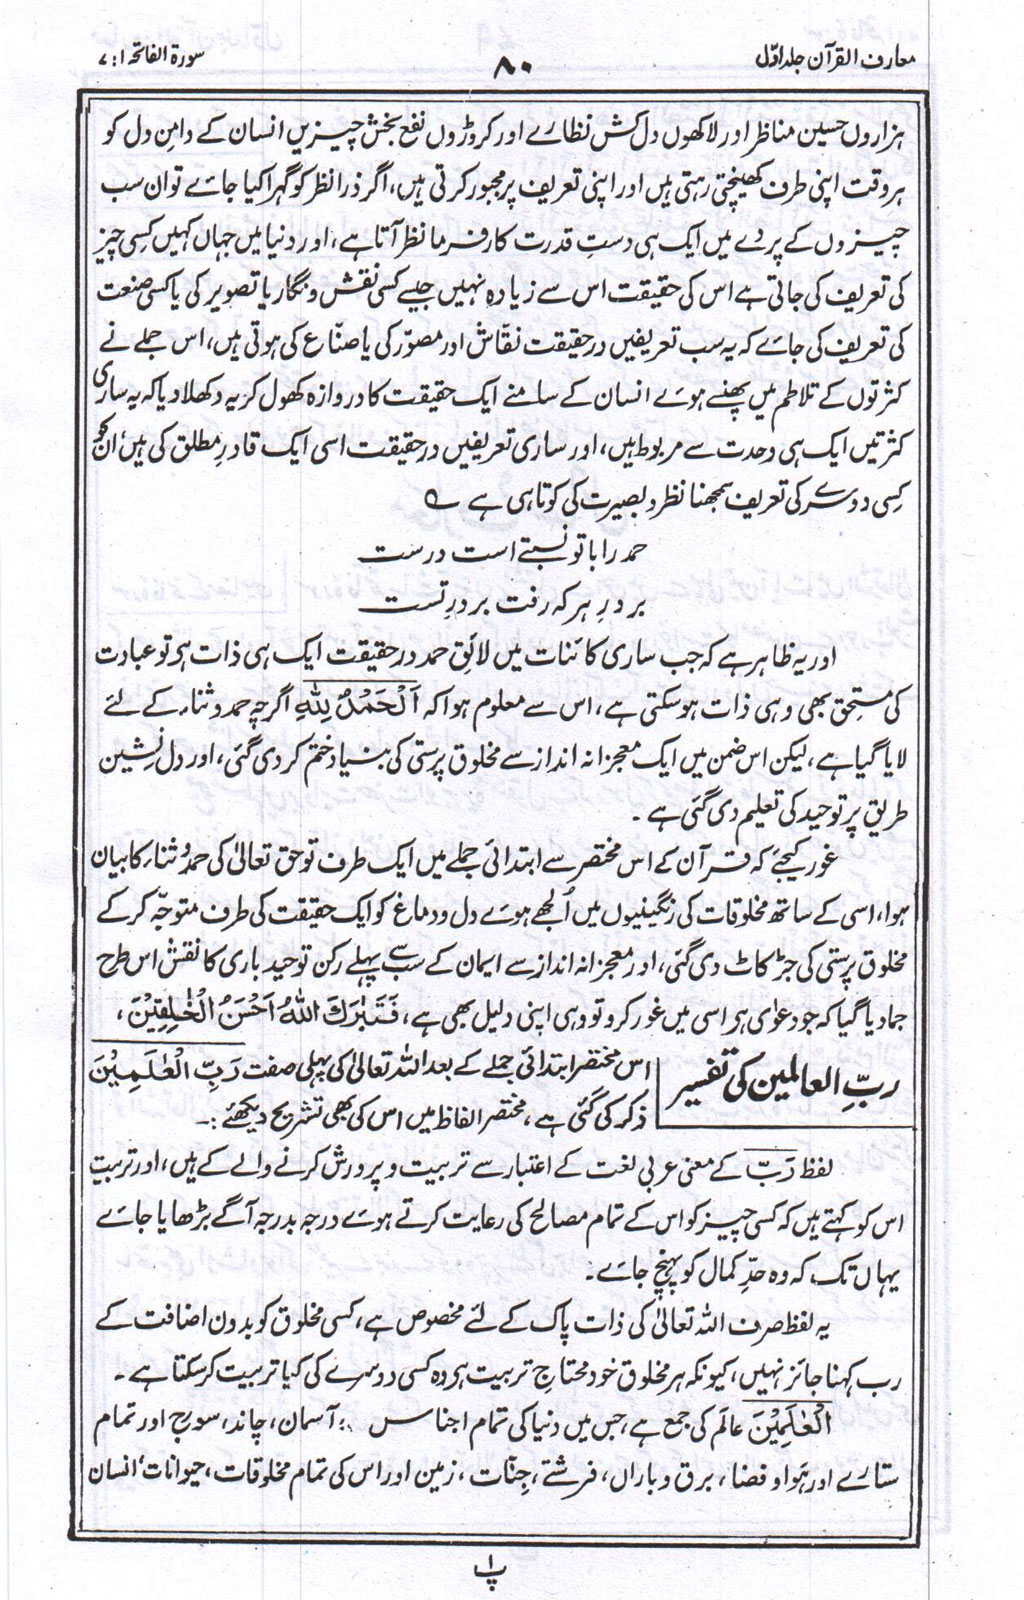 معارف القرآن جلد اوّل
۸۰
سورۃ الفاتحہ ۱ : ۷
ہزاروں حسین مناظر اور لاکھوں دل کش نظارے اور کروڑوں نفع بخش چیزیں انسان کے دامنِ دل کو
ہر وقت اپنی طرف کھینچتی رہتی ہیں اور اپنی تعریف پر مجبور کرتی ہیں، اگر ذرا نظر کو گہرا کیا جائے تو ان سب
چیزوں کے پردے میں ایک ہی دستِ قدرت کارفرما نظر آتا ہے، اور دنیا میں جہاں کہیں کسی چیز
کی تعریف کی جاتی ہے اس کی حقیقت اس سے زیادہ نہیں جیسے کسی نقش و نگار یا تصویر کی یا کسی صنعت
کی تعریف کی جائے کہ یہ سب تعریفیں درحقیقت نقّاش اور مصوّر کی یا صنّاع کی ہوتی ہیں، اس جملے نے
کثرتوں کے تلاطم میں پھنسے ہوئے انسان کے سامنے ایک حقیقت کا دروازہ کھول کر یہ دکھلا دیا کہ یہ ساری
کثرتیں ایک ہی وحدت سے مربوط ہیں، اور ساری تعریفیں درحقیقت اسی ایک قادرِ مطلق کی ہیں، ان کو
کسی دوسرے کی تعریف سمجھنا نظر و بصیرت کی کوتاہی ہے ؎
حمد را با تو نسبتے است درست
بر درِ ہر کہ رفت بر درِ تست
اور یہ ظاہر ہے کہ جب ساری کائنات میں لائقِ حمد درحقیقت ایک ہی ذات ہو تو عبادت
کی مستحق بھی وہی ذات ہوسکتی ہے، اس سے معلوم ہوا کہ اَلْحَمْدُ لِلّٰهِ اگرچہ حمد و ثناء کے لئے
لایا گیا ہے، لیکن اس ضمن میں ایک معجزانہ انداز سے مخلوق پرستی کی بنیاد ختم کر دی گئی، اور دل نشین
طریق پر توحید کی تعلیم دی گئی ہے۔
غور کیجئے کہ قرآن کے اس مختصر سے ابتدائی جملے میں ایک طرف تو حق تعالیٰ کی حمد و ثناء کا بیان
ہوا، اسی کے ساتھ مخلوقات کی رنگینیوں میں اُلجھے ہوئے دل و دماغ کو ایک حقیقت کی طرف متوجّہ کر کے
مخلوق پرستی کی جڑ کاٹ دی گئی، اور معجزانہ انداز سے ایمان کے سب سے پہلے رکن توحید باری کا نقش اس طرح
جما دیا گیا کہ جو دعوٰی ہو اسی میں غور کرو تو وہی اپنی دلیل بھی ہے، فَتَبٰرَكَ اللّٰهُ اَحْسَنُ الْخٰلِقِيْنَ،
ربّ العالمین کی تفسیر
اس مختصر ابتدائی جملے کے بعد اللہ تعالیٰ کی پہلی صفت رَبِّ الْعٰلَمِيْنَ
ذکر کی گئی ہے، مختصر الفاظ میں اس کی بھی تشریح دیکھئے :۔
لفظ رَبّ کے معنی عربی لغت کے اعتبار سے تربیت و پرورش کرنے والے کے ہیں، اور تربیت
اس کو کہتے ہیں کہ کسی چیز کو اس کے تمام مصالح کی رعایت کرتے ہوئے درجہ بدرجہ آگے بڑھایا جائے
یہاں تک کہ وہ حدِّ کمال کو پہنچ جائے۔
یہ لفظ صرف اللہ تعالیٰ کی ذات پاک کے لئے مخصوص ہے، کسی مخلوق کو بدون اضافت کے
رب کہنا جائز نہیں، کیونکہ ہر مخلوق خود محتاجِ تربیت ہو وہ کسی دوسرے کی کیا تربیت کرسکتا ہے۔
الْعٰلَمِيْنَ عالَم کی جمع ہے، جس میں دنیا کی تمام اجناس : آسمان، چاند، سورج اور تمام
ستارے اور ہوا و فضا، برق و باراں، فرشتے، جِنّات، زمین اور اس کی تمام مخلوقات، حیوانات، انسان
پ۱